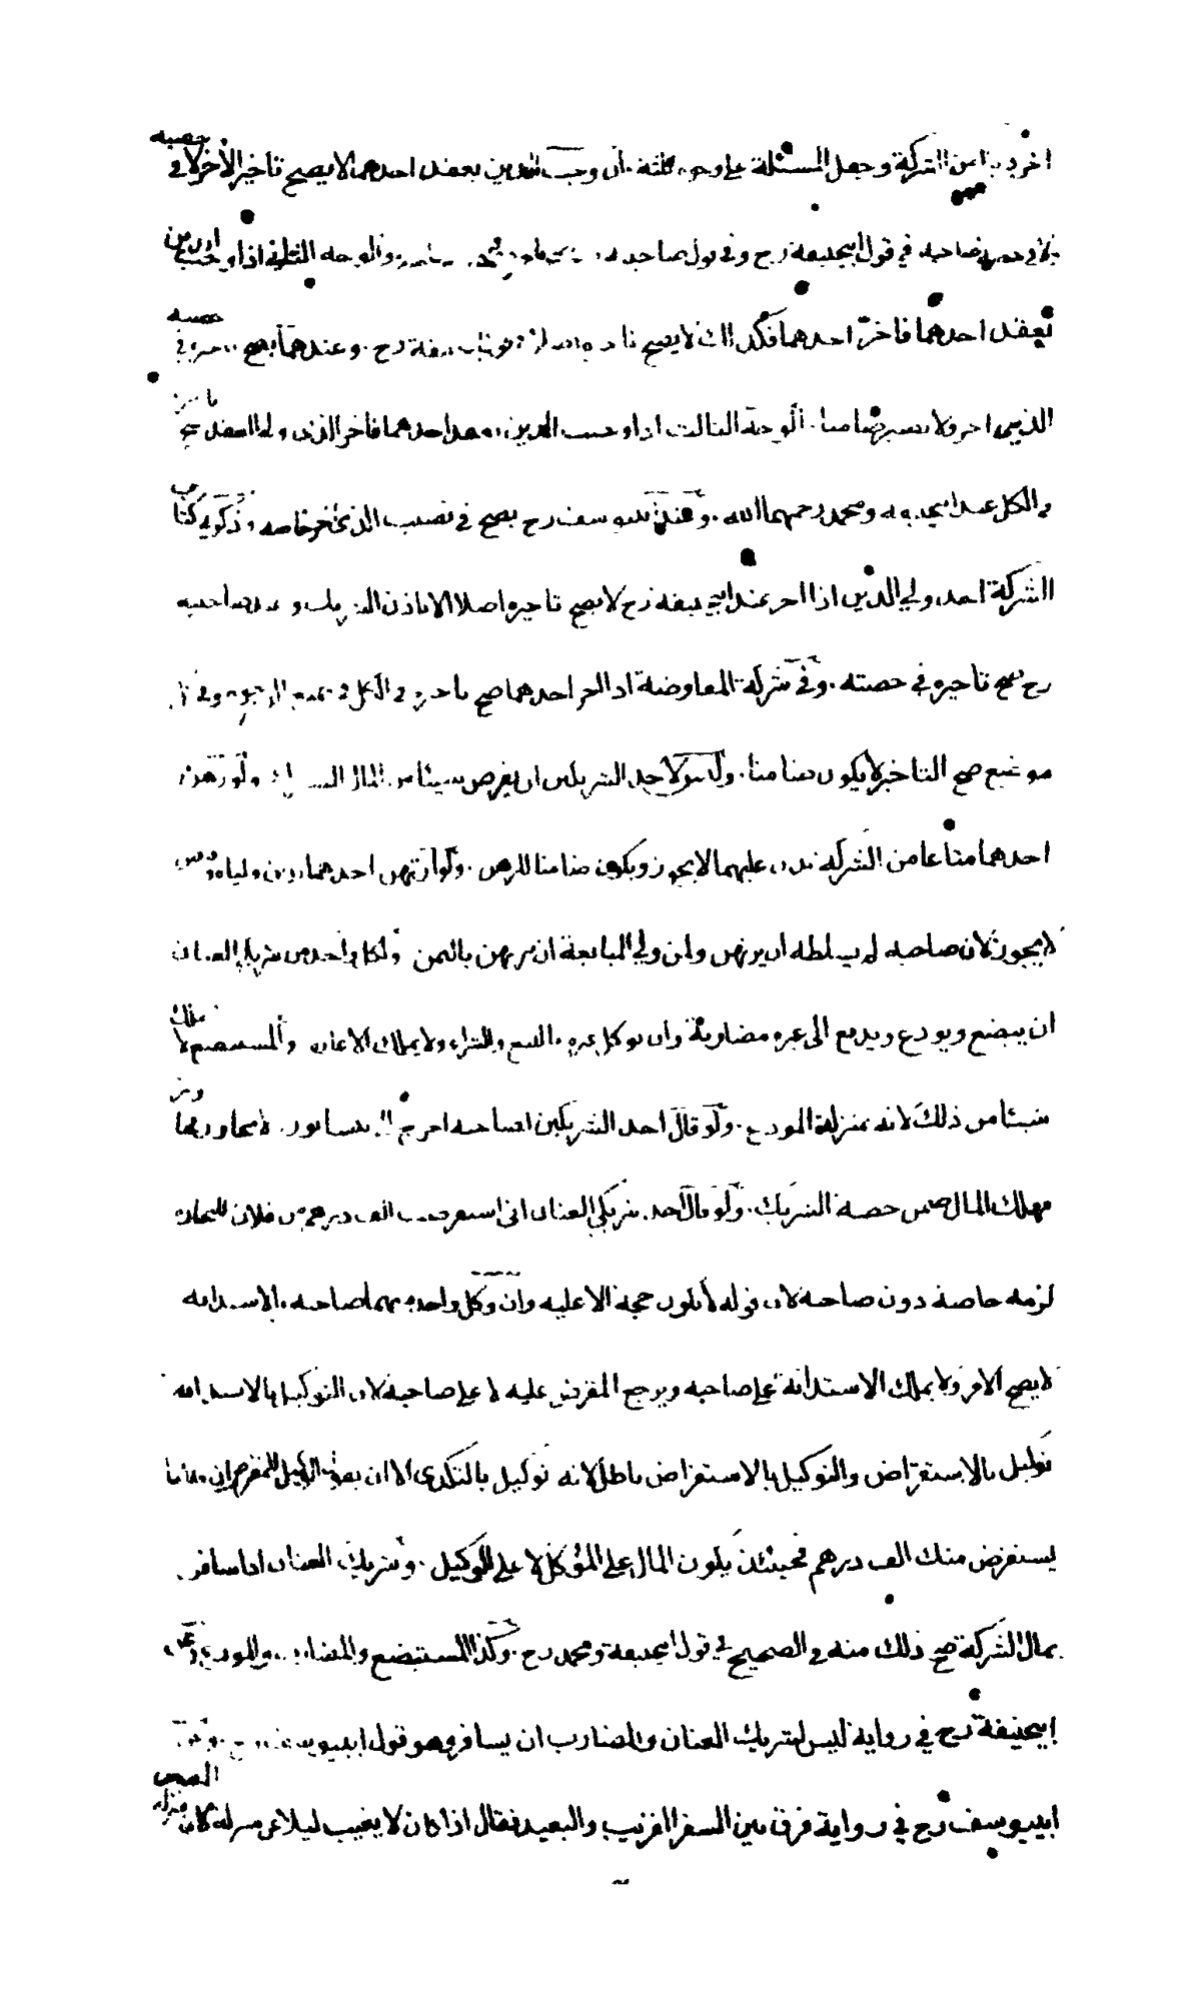 اخر دينا من الشركة وجعل المسئلة على وجوه ثلثة ان وجب الدين بعقد احدهما لا يصح تاخير الآخر لا في حصته
ولا في حصة صاحبه في قول ابيحنيفة رح وفي قول صاحبيه والوجه الثاني اذا وجب الدين
بعقد احدهما فاخر احدهما فكذلك لا يصح وعندهما يصح في حصته
الذي اخر ولا يصير ضامنا الوجه الثالث اذا وجب الدين بعقد احدهما فاخر الذي ولي العقد صح
في الكل عند ابيحنيفة ومحمد رحمهما الله وعند ابييوسف رح يصح في نصيب الذي اخر خاصة وذكر في كتاب
الشركة احد ولي الدين اذا اخر عند ابيحنيفة رح لا يصح تاخيره اصلا الا باذن الشريك وعند صاحبيه
رح يصح تاخيره في حصته وفي شركة المفاوضة اذا اخر احدهما صح تاخيره في الكل في جميع الوجوه وفي كل
موضع صح التاخير لا يكون ضامنا وليس لاحد الشريكين ان يقرض شيئا من المال ولو رهن
احدهما متاعا من الشركة بدين عليهما لا يجوز ويكون ضامنا للرهن ولو ارتهن احدهما بدين ولياه
لا يجوز لان صاحبه لم يسلطه ان يرتهن ولمن ولي المبايعة ان يرتهن بالثمن ولكل واحد من شريكي العنان
ان يبضع ويودع ويدفع الى غيره مضاربة وان يوكل غيره بالبيع والشراء ولا يملك الاعارة والمستبضع لا يملك
شيئا من ذلك لانه بمنزلة المودع ولو قال احد الشريكين لصاحبه اخرج الى نيسابور لا تجاوزها وجاوز
فهلك المال ضمن حصة الشريك ولو قال احد شريكي العنان اني استقرضت الف درهم من فلان للتجارة
لزمه خاصة دون صاحبه لان قوله لا يكون حجة الا عليه وان وكل واحد منهما صاحبه بالاستدانة
لا يصح الامر ولا يملك الاستدانة على صاحبه ويرجع المقرض عليه لا على صاحبه لان التوكيل بالاستدانة
توكيل بالاستقراض والتوكيل بالاستقراض باطل لانه توكيل بالتكدي الا ان يقول الوكيل للمقرض ان فلانا
يستقرض منك الف درهم فحينئذ يكون المال على الموكل لا على الوكيل وشريك العنان اذا سافر
بمال الشركة صح ذلك منه في الصحيح في قول ابيحنيفة ومحمد رح وكذا المستبضع والمضارب والمودع وعن
ابيحنيفة رح في رواية ليس لشريك العنان والمضارب ان يسافر وهو قول ابييوسف رح وعن
ابييوسف رح في رواية فرق بين السفر القريب والبعيد فقال اذا كان لا يغيب ليلا عن منزله كان بمنزلة المصر